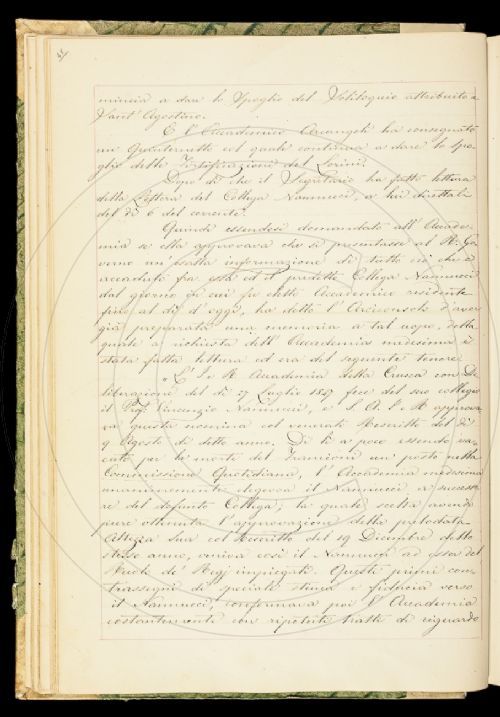 mincia a dare lo Spoglio del Soliloquio attribuito a
Sant'Agostino.
E l'Accademico Arcangeli ha consegnato
un Quadernetto col quale continua a dare lo Spo-
glio delle Fortificazioni del Lorini.
Dopo di che il Segretario ha fatto lettura
della Lettera del Collega Nannucci, a lui diretta li
del dì 6 del corrente.
Quindi essendosi domandato all'Accade-
mia se ella approvava che si presentasse al R. Go-
verno un'esatta informazione di tutto ciò che è
accaduto fra essa ed il predetto Collega Nannucci
dal giorno in cui fu eletto Accademico residente
fino al dì d'oggi, ha detto l'Arciconsolo d'aver
già preparata una memoria a tal uopo, della
quale a richiesta dell'Accademia medesima è
stata fatta lettura ed era del seguente tenore
"L'I. e R. Accademia della Crusca con De-
liberazione del dì 27 Luglio 1847 fece del suo collegio
il Prof. Vincenzio Nannucci, e S. A. I. e R. approva-
va questa nomina col venerato Rescritto del dì
9 Agosto di detto anno. Di lì a poco essendo va-
cato per la morte del Franconi un posto nella
Commissione Quotidiana, l'Accademia medesima
unanimemente eleggeva il Nannucci a successo-
re del defunto Collega; la quale scelta avendo
pure ottenuta l'approvazione della prelodata
Altezza Sua col Rescritto del 19 Dicembre dello
stesso anno, veniva così il Nannucci ad esser del
Ruolo de' Regj impiegati. Questi primi con-
trassegni di speciale stima e fiducia verso
il Nannucci, confermava poi l'Accademia
costantemente con ripetuti tratti di riguardo